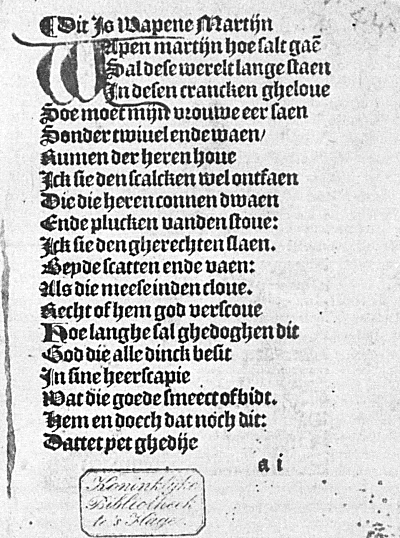 ¶Dit Js Wapene Martijn
WApen martijn hoe salt gaē
Sal dese werelt lange staen
Jn desen crancken gheloue
Soe moet mijn vrouwe eer saen
Sonder twiuel ende waen/
Rumen der heren houe
Jck sie den scalcken wel ontfaen
Die die heren connen dwaen
Ende plucken vanden stoue:
Jck sie den gherechten slaen.
Beyde scatten ende vaen:
Als die meese inden cloue.
Recht of hem god verscoue
Hoe langhe sal ghedoghen dit
God die alle dinck besit
Jn sine heerscapie
Wat die goede smeect of bidt.
Hem en doech dat noch dit:
Dattet yet ghedije
a i
Koninklijke
Bibliotheek
te 's Hage.